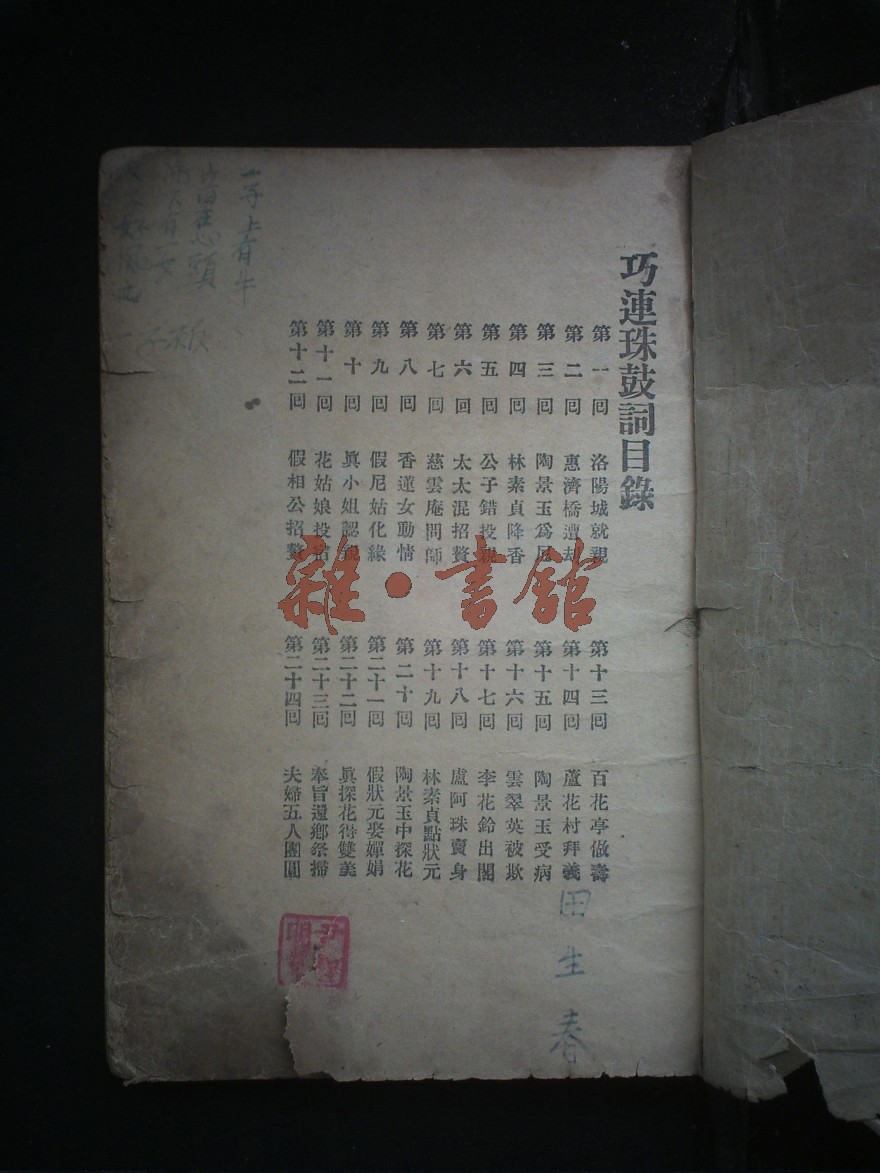 巧連珠鼓詞目錄
第一回 洛陽城就親
第二回 惠濟橋遭刦
第三回 陶景玉爲尼
第四回 林素貞降香
第五回 公子錯投親
第六回 太太混招贅
第七回 慈雲庵問師
第八回 香蓮女動情
第九回 假尼姑化緣
第十回 眞小姐認親
第十一回 花姑娘投宿
第十二回 假相公招贅
第十三回 百花亭做壽
第十四回 蘆花村拜義
第十五回 陶景玉受病
第十六回 雲翠英被欺
第十七回 李花鈴出閣
第十八回 盧阿珠賣身
第十九回 林素貞點狀元
第二十回 陶景玉中探花
第二十一回 假狀元娶嬋娟
第二十二回 眞探花得雙美
第二十三回 奉旨還鄉祭掃
第二十四回 夫婦五人團圓
田生春
一字上有牛
雜·書館